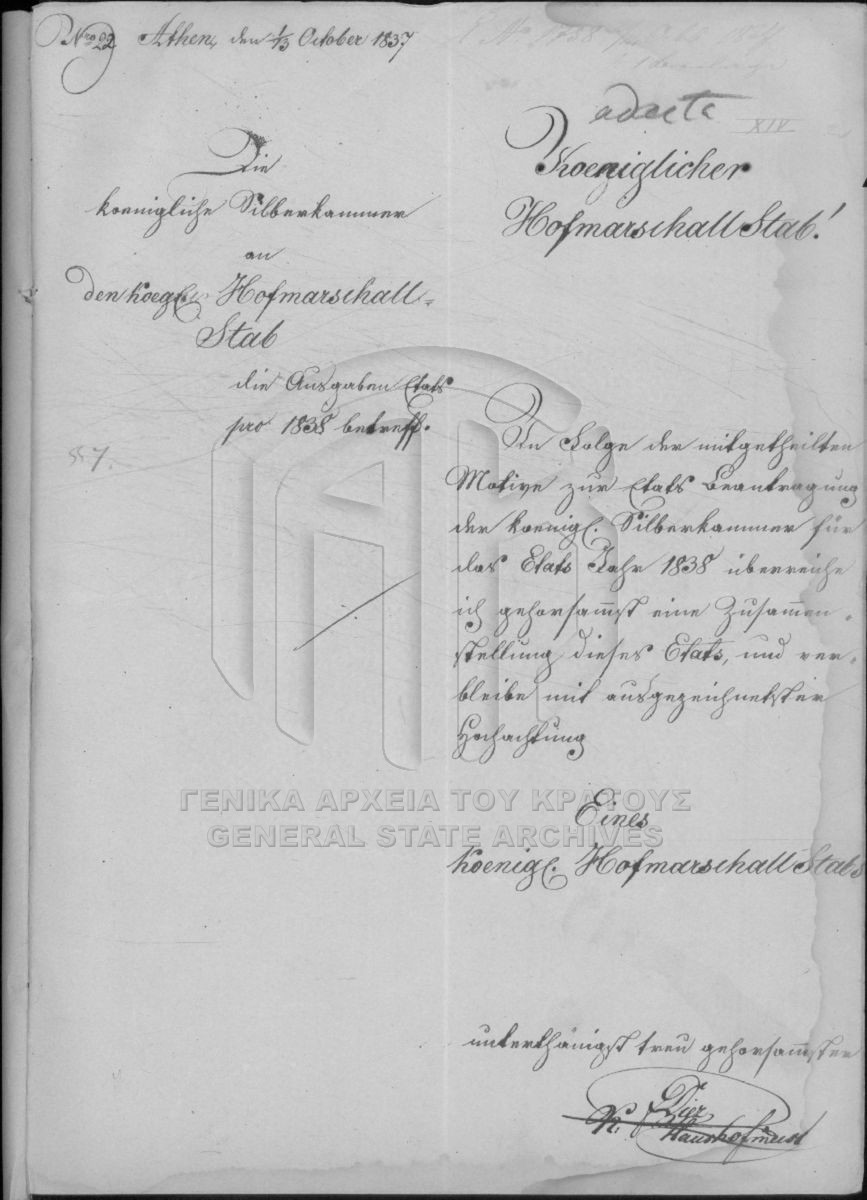 Nro 22 Athen, den 1/13 October 1837
ad acta
XIV
Die
koenigliche Silberkammer
an
den koegl. Hofmarschall-
Stab
die Ausgaben Etats
pro 1838 betreff.
Koeniglicher
Hofmarschall Stab!
In Folge der mitgetheilten
Motive zur Etats Beantragung
der koenigl. Silberkammer für
das Etats Jahr 1838 überreiche
ich gehorsammst eine Zusammen-
stellung dieses Etats, und ver-
bleibe mit ausgezeichnetster
Hochachtung
Eines
koenigl. Hofmarschall Stabs
unterthänigst treu gehorsammster
K. Haushofmeist
ΓΕΝΙΚΑ ΑΡΧΕΙΑ ΤΟΥ ΚΡΑΤΟΥΣ
GENERAL STATE ARCHIVES